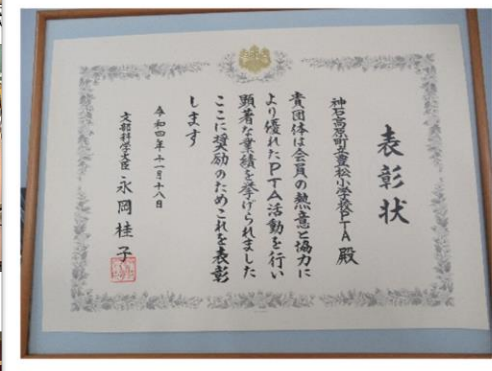 表彰状
神石高原町立豊松小学校PTA 殿
貴団体は会員の熱意と協力に
より優れたPTA活動を行い
顕著な業績を挙げられました
ここに奨励のためこれを表彰
します
令和四年十一月十八日
文部科学大臣 永岡桂子